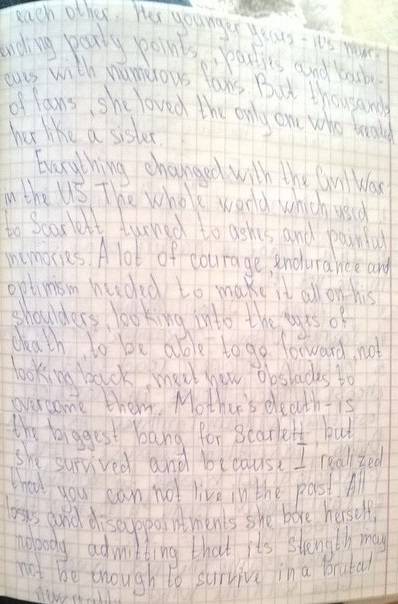 each other. Her younger years - it's never
ending party points, parties and barbe-
cues with numerous fans. But thousands
of fans, she loved the only one who treated
her like a sister.
Everything changed with the Civil War
in the US. The whole world which used
to Scarlett turned to ashes and painful
memories. A lot of courage, endurance and
optimism needed to make it all on his
shoulders, looking into the eyes of
death, to be able to go forward, not
looking back, meet new obstacles to
overcome them. Mother's death - is
the biggest bang for Scarlett, but
she survived and because I realized
that you can not live in the past. All
loses and disappointments she bore herself,
nobody admitting that its strength may
not be enough to survive in a brutal